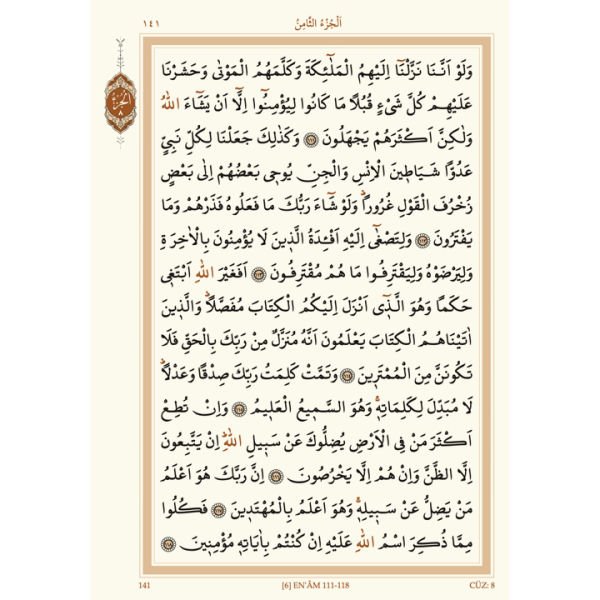 ١٤١
اَلْجُزْءُ الثَّامِنُ
اَلْجُزْءُ
٨
وَلَوْ اَنَّنَا نَزَّلْنَٓا اِلَيْهِمُ الْمَلٰٓئِكَةَ وَكَلَّمَهُمُ الْمَوْتٰى وَحَشَرْنَا
عَلَيْهِمْ كُلَّ شَيْءٍ قُبُلًا مَا كَانُوا لِيُؤْمِنُٓوا اِلَّٓا اَنْ يَشَٓاءَ اللّٰهُ
وَلٰكِنَّ اَكْثَرَهُمْ يَجْهَلُونَ ﴿١١١﴾ وَكَذٰلِكَ جَعَلْنَا لِكُلِّ نَبِيٍّ
عَدُوًّا شَيَاطِينَ الْاِنْسِ وَالْجِنِّ يُوحِي بَعْضُهُمْ اِلٰى بَعْضٍ
زُخْرُفَ الْقَوْلِ غُرُورًاۜ وَلَوْ شَٓاءَ رَبُّكَ مَا فَعَلُوهُ فَذَرْهُمْ وَمَا
يَفْتَرُونَ ﴿١١٢﴾ وَلِتَصْغٰٓى اِلَيْهِ اَفْـِٔدَةُ الَّذِينَ لَا يُؤْمِنُونَ بِالْاٰخِرَةِ
وَلِيَرْضَوْهُ وَلِيَقْتَرِفُوا مَا هُمْ مُقْتَرِفُونَ ﴿١١٣﴾ اَفَغَيْرَ اللّٰهِ اَبْتَغِي
حَكَمًا وَهُوَ الَّذِٓي اَنْزَلَ اِلَيْكُمُ الْكِتَابَ مُفَصَّلًاۜ وَالَّذِينَ
اٰتَيْنَاهُمُ الْكِتَابَ يَعْلَمُونَ اَنَّهُ مُنَزَّلٌ مِنْ رَبِّكَ بِالْحَقِّ فَلَا
تَكُونَنَّ مِنَ الْمُمْتَرِينَ ﴿١١٤﴾ وَتَمَّتْ كَلِمَتُ رَبِّكَ صِدْقًا وَعَدْلًاۜ
لَا مُبَدِّلَ لِكَلِمَاتِهِۚ وَهُوَ السَّمِيعُ الْعَلِيمُ ﴿١١٥﴾ وَاِنْ تُطِعْ
اَكْثَرَ مَنْ فِي الْاَرْضِ يُضِلُّوكَ عَنْ سَبِيلِ اللّٰهِۜ اِنْ يَتَّبِعُونَ
اِلَّا الظَّنَّ وَاِنْ هُمْ اِلَّا يَخْرُصُونَ ﴿١١٦﴾ اِنَّ رَبَّكَ هُوَ اَعْلَمُ
مَنْ يَضِلُّ عَنْ سَبِيلِهِۚ وَهُوَ اَعْلَمُ بِالْمُهْتَدِينَ ﴿١١٧﴾ فَكُلُوا
مِمَّا ذُكِرَ اسْمُ اللّٰهِ عَلَيْهِ اِنْ كُنْتُمْ بِاٰيَاتِهِ مُؤْمِنِينَ ﴿١١٨﴾
141
[6] EN'ÂM 111-118
CÜZ: 8